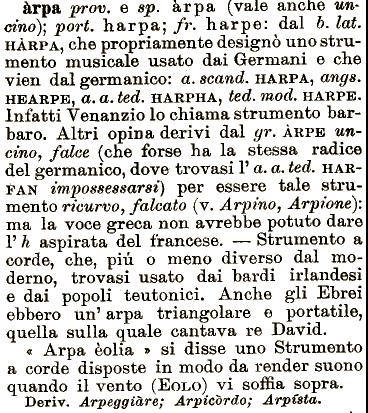 àrpa prov. e sp. àrpa (vale anche un-
cino); port. harpa; fr. harpe: dal b. lat.
HÀRPA, che propriamente designò uno stru-
mento musicale usato dai Germani e che
vien dal germanico: a. scand. HARPA, angs.
HEARPE, a. a. ted. HARPHA, ted. mod. HARPE.
Infatti Venanzio lo chiama strumento bar-
baro. Altri opina derivi dal gr. ÀRPE un-
cino, falce (che forse ha la stessa radice
del germanico, dove trovasi l' a. a. ted. HAR-
FAN impossessarsi) per essere tale stru-
mento ricurvo, falcato (v. Arpino, Arpione):
ma la voce greca non avrebbe potuto dare
l' h aspirata del francese. — Strumento a
corde, che, piú o meno diverso dal mo-
derno, trovasi usato dai bardi irlandesi
e dai popoli teutonici. Anche gli Ebrei
ebbero un' arpa triangolare e portatile,
quella sulla quale cantava re David.
« Arpa èolia » si disse uno Strumento
a corde disposte in modo da render suono
quando il vento (EOLO) vi soffia sopra.
Deriv. Arpeggiàre; Arpicòrdo; Arpísta.